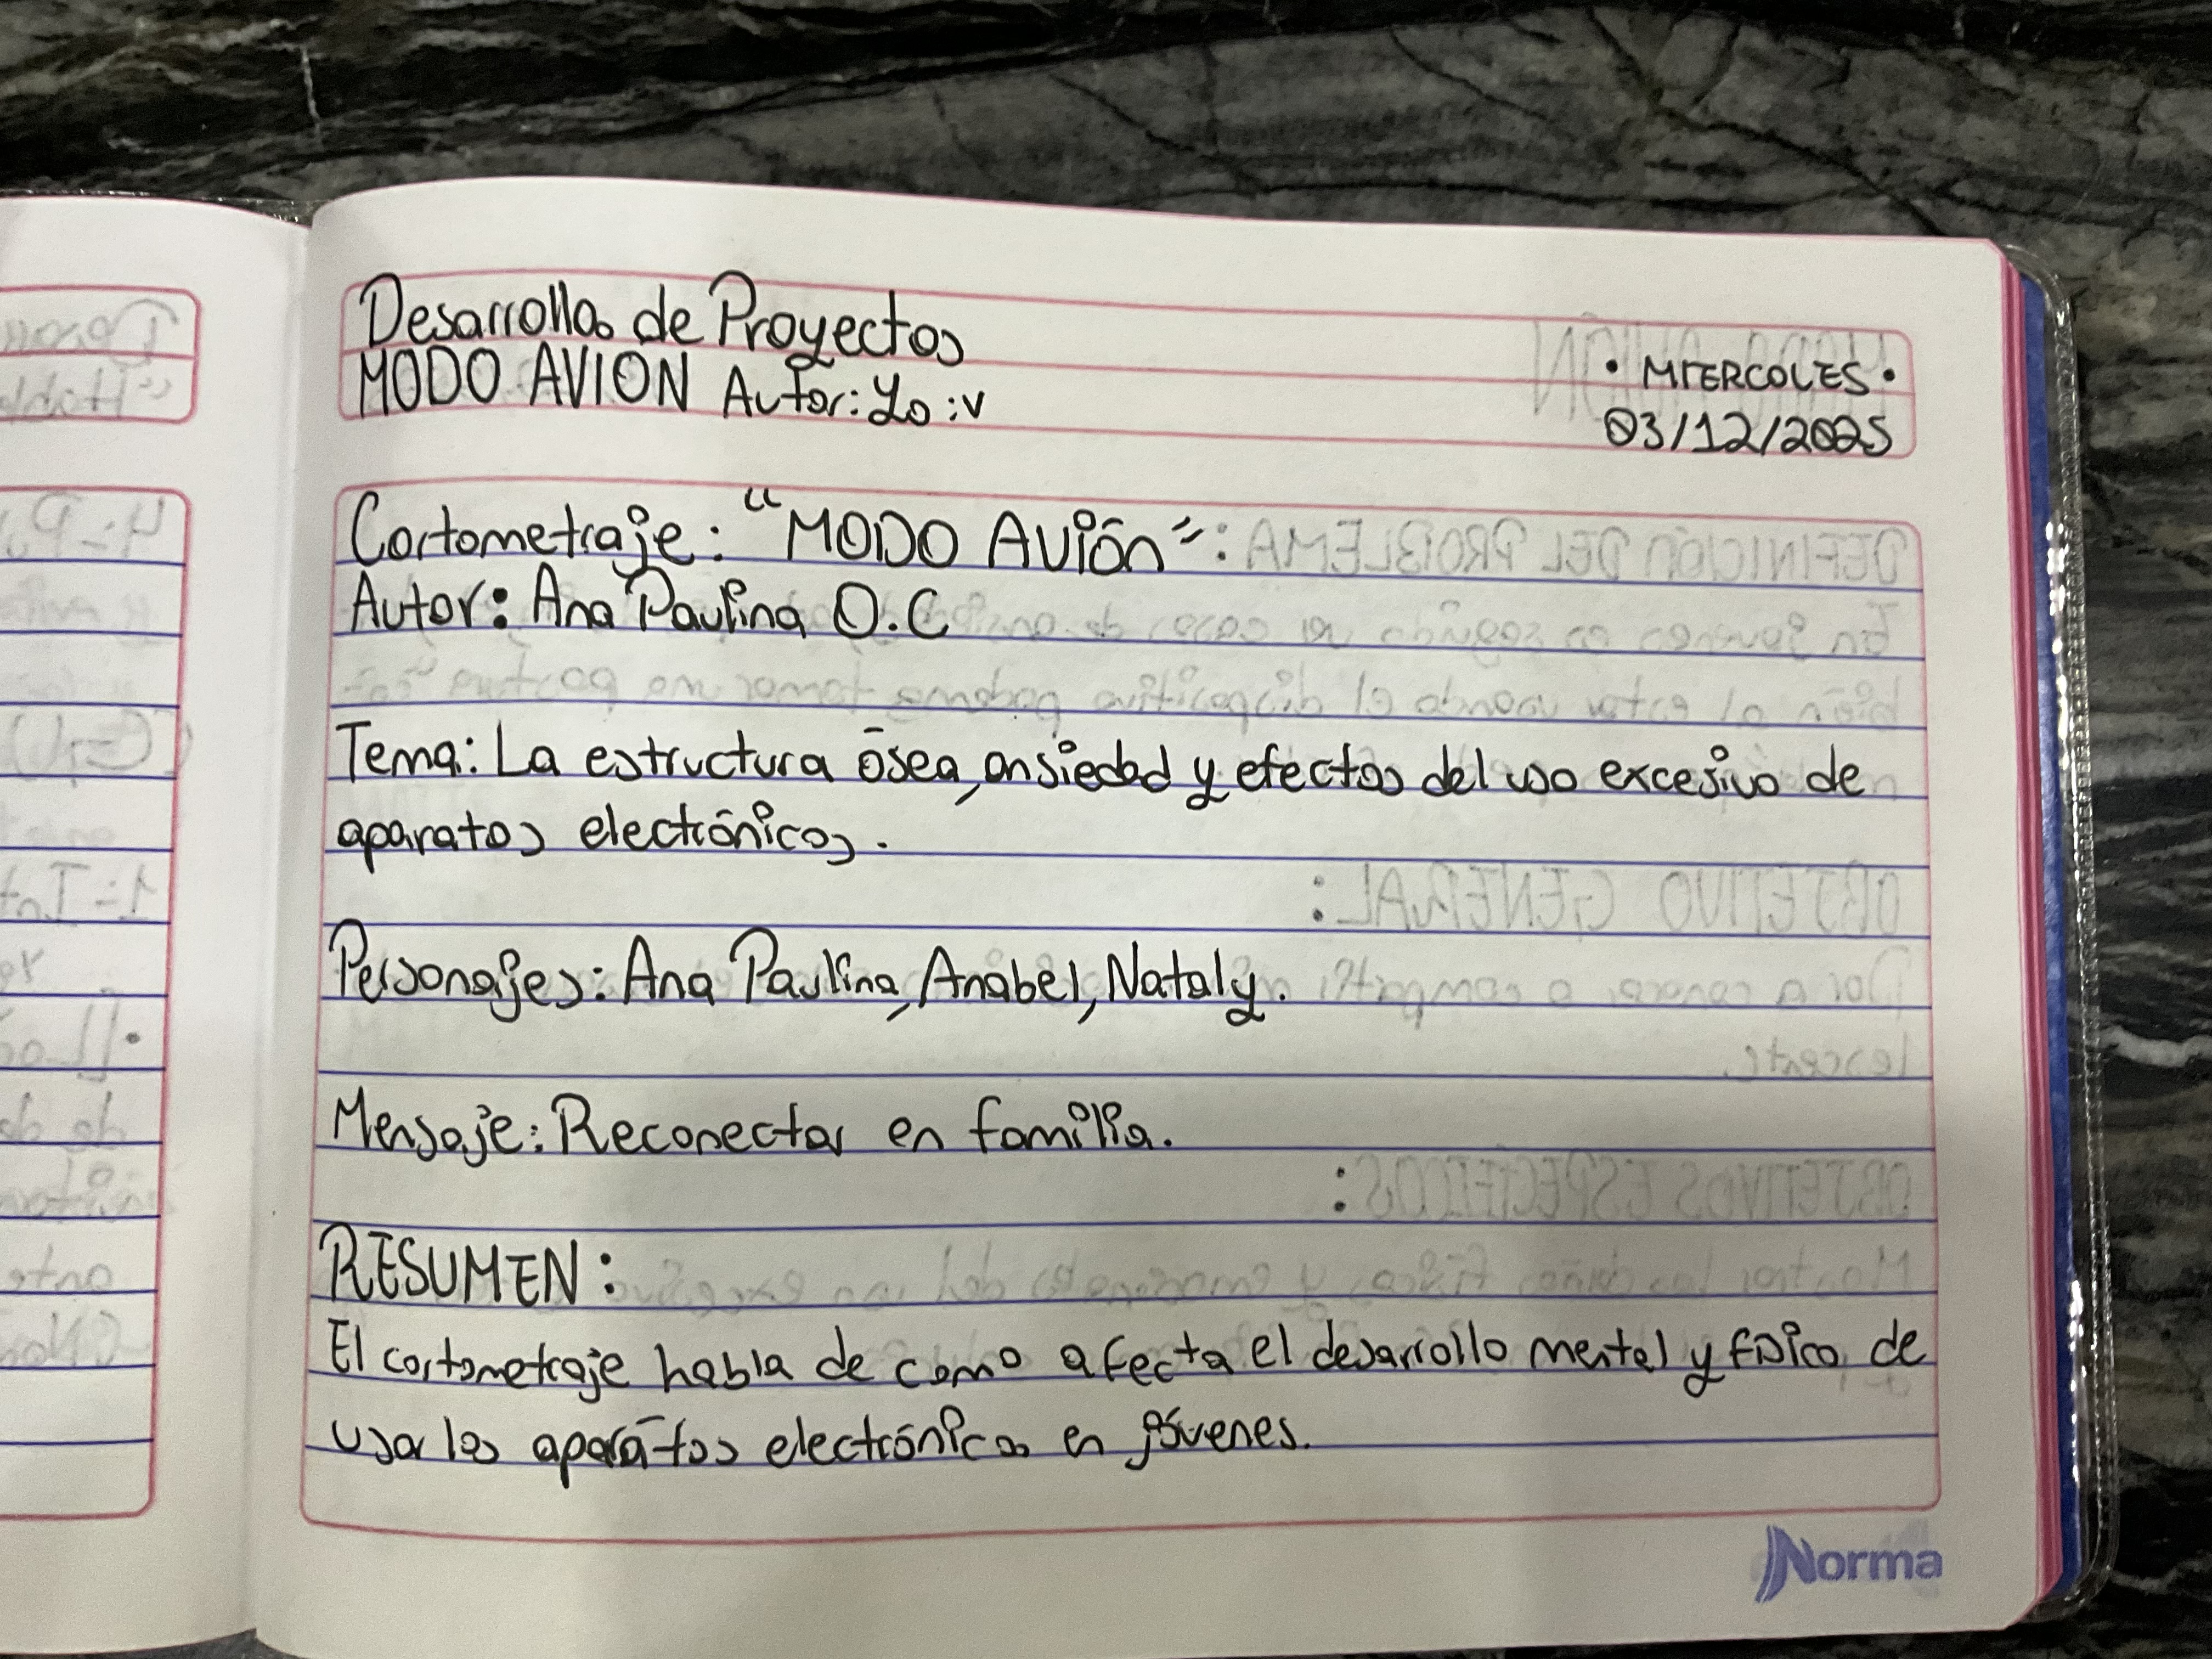 Desarrollo de Proyectos
MODO AVION Autor: Yo :v
• MIERCOLES •
03/12/2025
Cortometraje: "MODO AVIÓN"
Autor: Ana Paulina O.C
Tema: La estructura ósea, ansiedad y efectos del uso excesivo de
aparatos electrónicos.
Personajes: Ana Paulina, Anabel, Nataly.
Mensaje: Reconectar en familia.
RESUMEN:
El cortometraje habla de como afecta el desarrollo mental y físico de
usar los aparatos electrónicos en jóvenes.
Norma